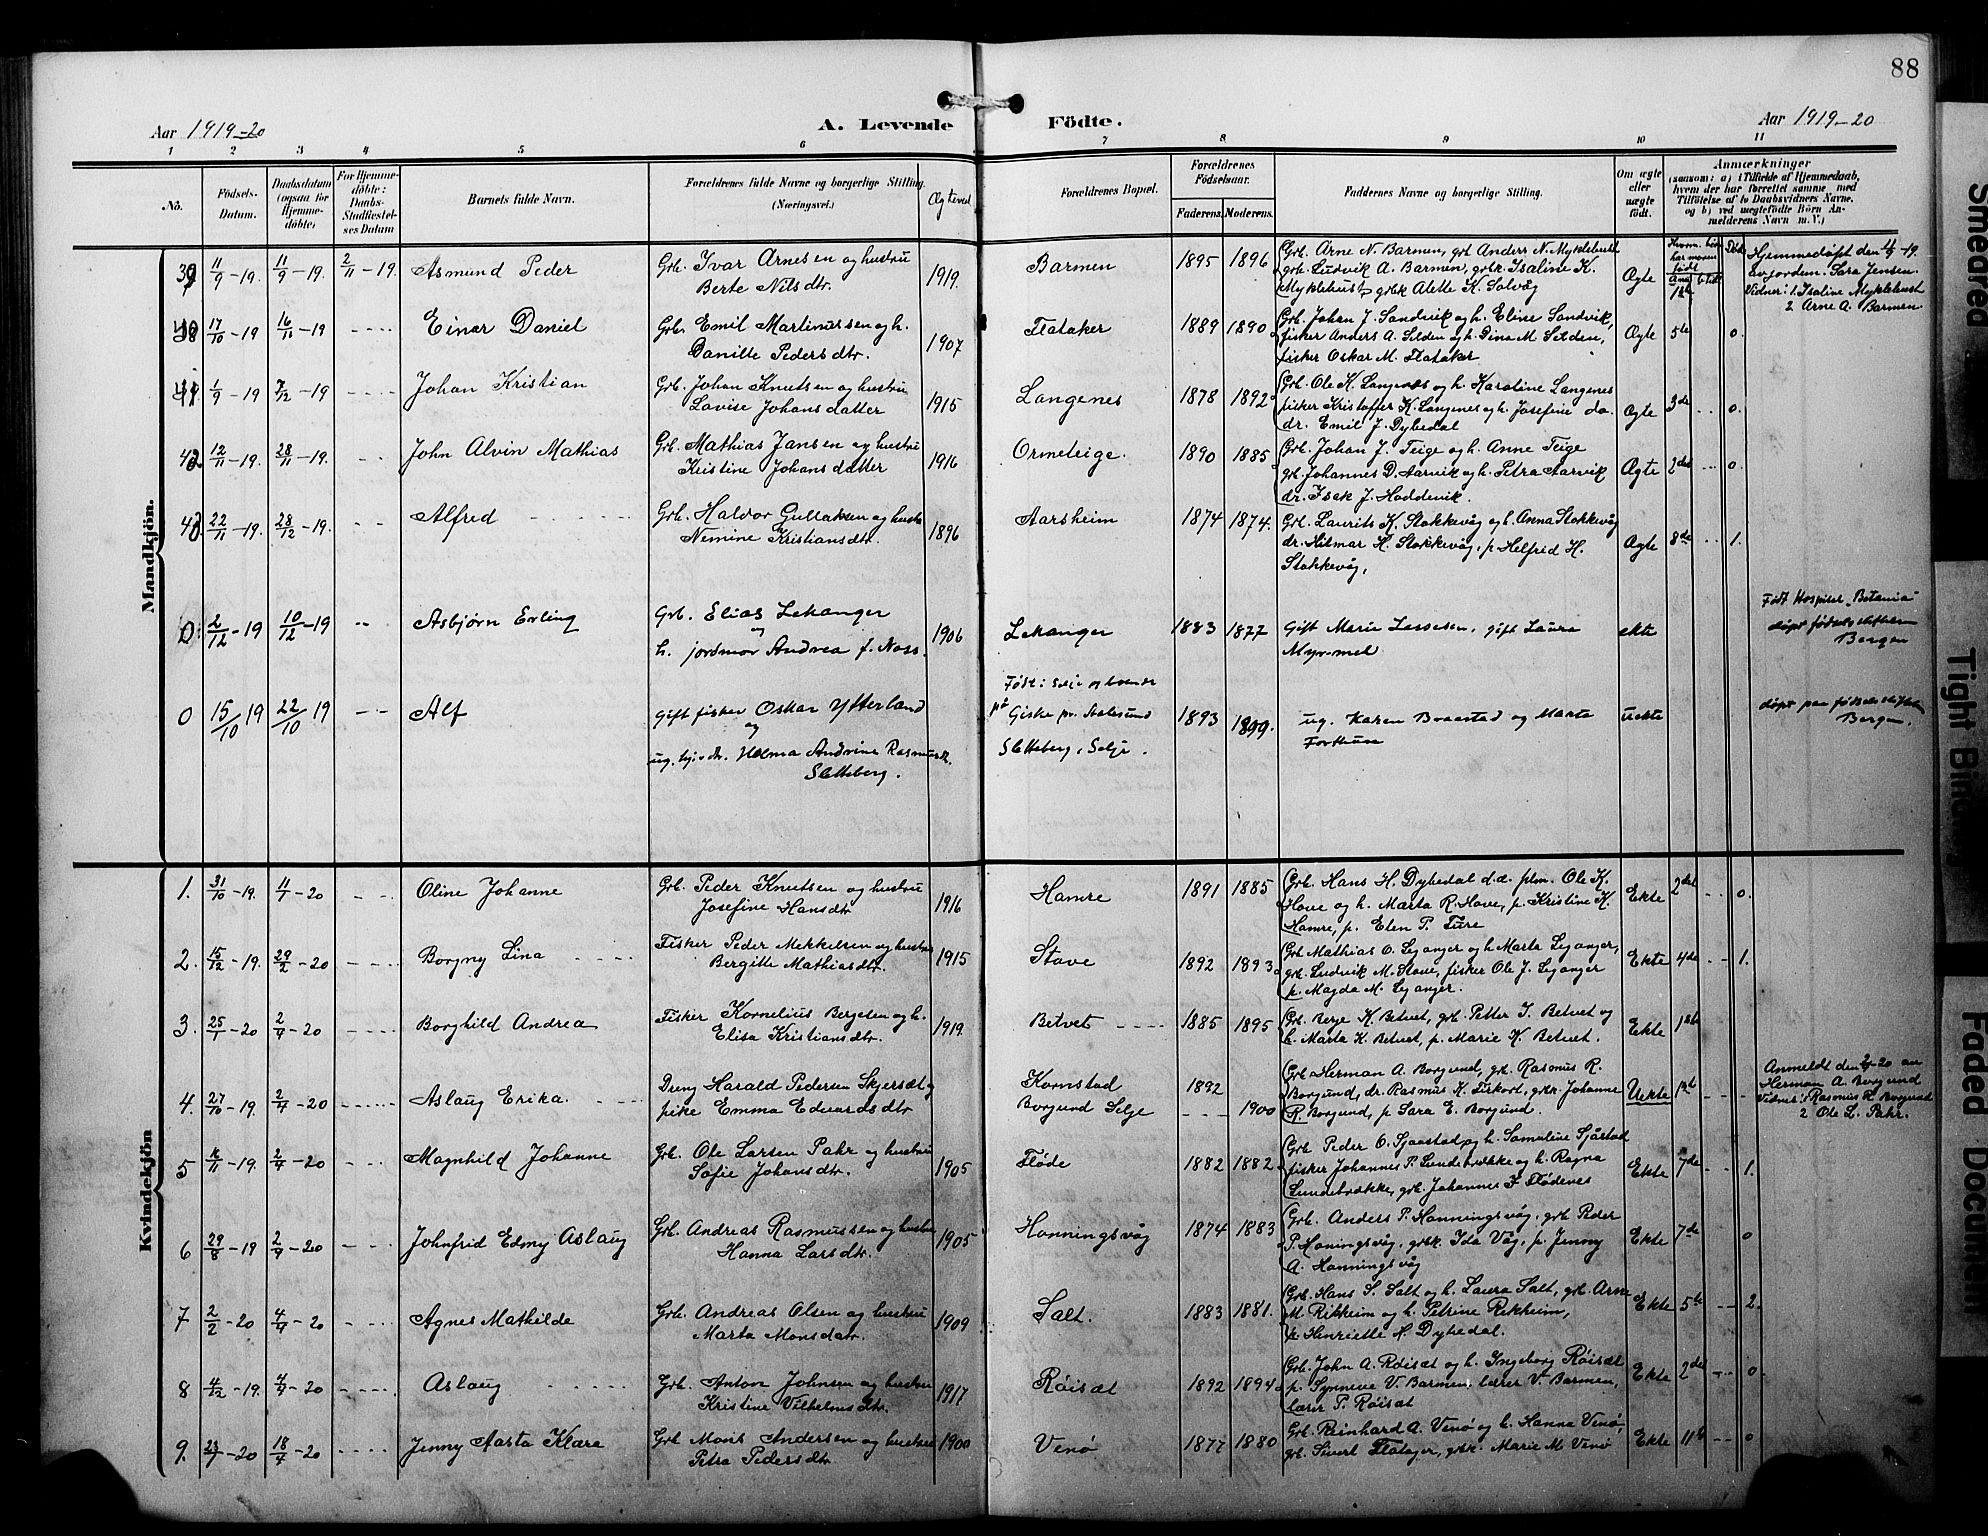 88
Aar 1919-20
A. Levende Födte.
Aar 1919-20
1 2 3 4 5 6 7 8 9 10 11
No.
Födsels-Datum.
Daabsdatum (ogsaa for Hjemme-döbte)
For Hjemme-döbte: Daabs-Stadfæstel-ses Datum
Barnets fulde Navn.
Forældrenes fulde Navne og borgerlige Stilling. (Næringsvei.)
Ægteved
Forældrenes Bopæl.
Forældrenes Födselsaar.
Faderens. Moderens.
Faddernes Navne og borgerlige Stilling.
Om ægte eller uægte födt.
Anmærkninger
(saasom: a) i Tilfælde af Hjemmedaab, hvem der har forrettet samme, med Tilföielse af to Daabsvidners Navne, og b) ved uægtefödte Börn Anmelderens Navn m. V.)
Mandkjön.
39 11/9-19 11/9-19. 2/11-19. Asmund Peder
Grb. Ivar Arnesen og hustru
Berte Nilsdtr. 1919.
Barmen 1895 1896
Grb. Arne N. Barmen, grb Anders N. Myklebust
grb. Ludvik A. Barmen, grbk. Isaline K.
Myklebust, grbk Alette K. Salvåg
Ægte 1ste
Hjemmedöpt den 11/9-19.
av jordem. Sara Jensen.
Vidner: 1. Isaline Myklebust
2 Arne A. Barmen
40 17/10-19 16/11-19 Einar Daniel
Grb. Emil Martinussen og h.
Danille Pedersdtr. 1907
Flataker 1889 1890
Grb. Johan J. Sandvik og h. Eline Sandvik,
fisker Anders A. Silden og h. Dina M. Silden,
fisker Oskar M. Flataker
Ægte 5te 0.
41 1/9-19 7/12-19 Johan Kristian
Grb. Johan Knutsen og hustru
Lovise Johansdatter 1915
Langenes 1878 1892
Grb. Ole K. Langenes og h. Karoline Langenes
fisker Kristoffer K. Langenes og h. Josefine do.
dr. Emil J. Dybedal
Ægte 3de 0.
42 12/11-19. 28/11-19. John Alvin Mathias
Grb. Mathias Jansen og hustru
Kristine Johansdatter 1916
Ormeteige. 1890 1885
Grb. Johan J. Teige og h. Anne Teige
grb. Johannes D. Aarvik og h. Petra Aarvik
dr. Isak J. Hoddevik.
Ægte 2det 0.
43 22/11-19. 28/12-19. Alfred
Grb. Haldor Gullaksen og hustr
Nemine Kristiansdtr. 1896
Aarsheim 1874 1874.
Grb. Laurits K. Stokkevåg og h. Anna Stokkevåg
dr. Hilmar H. Stokkevåg, p Helfrid H.
Stokkevåg,
Ægte 8de 1.
0. 2/12-19 10/12-19 Asbjørn Erling
Grb. Elias Lekanger
og
h. jordmor Andrea f. Nass. 1906
Lekanger 1883 1877
Gift Marie Lassesen, gift Laura
Myrmel
ekte
Født Hospitset "Betania"
døpt fødselsstiftelsen
Bergen
0 15/10 19 22/10 19 Alf
Gift fisker Oskar Ytterland
og
ug. tj. dtr. Helma Andrine Rasmusdt.
Sletteberg.
Født: Selje og boende
på Giske pr. Aalesund
Sletteberg, Selje. 1893 1899.
ug. Karen Braastad og Marta
Forthun
uekte
døpt paa fødselsstiftelsen
Bergen.
Kvindekjön
1. 31/10-19. 11/1-20 Oline Johanne
Grb. Peder Knutsen og hustru
Josefine Hansdtr. 1916
Hamre 1891 1885
Grb. Hans H. Dybedal d.d. plm. Ole K.
Hove og h. Marta R. Hove, p. Kristine K.
Hamre, p. Elen P. Ture
Ekte 2det 0.
2. 15/12-19. 29/2-20 Borgny Lina
Fisker Peder Mekkelsen og hustru
Bergitte Mathiasdtr. 1915
Stave 1892 1893
Grb Mathias O. Leganger og h Marta Leganger,
grb. Ludvik M. Stave, fisker Ole J. Leganger
p. Magda M. Leganger.
Ekte 4de 1.
3. 25/1-20 2/4-20 Borghild Andrea
Fisker Kornelius Bergesen og h.
Elisa Kristiansdtr. 1919.
Betvet 1885 1895
Grb. Berge K Betvet, grb. Petter I. Betvet og
h. Marta K. Betvet, p. Marie K. Betvet.
Ekte 1ste
4. 27/10-19. 2/4-20 Aslaug Erika.
Dreng Harald Pedersen Skjersæt og
pike Emma Edvardsdtr
Kornstad
Borgund Selje 1892 1900
Grb Herman A. Borgund, grb. Rasmus R.
Borgund, dr. Rasmus K. Fiskort, grbk Johanne
R. Borgund, p Sara E. Borgund.
Uekte 1ste
Anmeldt den 2/4-20 av
Herman A. Borgund
Vidner: 1 Rasmus R. Borgund
2 Ole L. Pahr.
5 11-19. 2/4-20 Magnhild Johanne
Grb. Ole Larsen Pahr og hustru
Sofie Johansdtr. 1905
Fløde 1882 1882
Grb. Peder O. Sjaastad og h. Samuline Sjåstad
fisker Johannes P. Lundebrække og h. Ragna
Lundebrække, grb. Johannes F. Flødenes
Ekte 7de 1.
6 29/8-19 2/4-20 Johnfrid Edny Aslaug
Grb. Andreas Rasmussen og hustru
Hanna Larsdtr. 1905
Honningsvåg 1874 1883
Grb. Anders P. Honningsvåg, grb. Peder
P. Honingsvåg, grbk. Ida Våg, p. Jenny
A. Honningsvåg
Ekte 7de 0
7 2/2-20 4/4-20 Agnes Mathilde
Grb. Andreas Olsen og hustru
Marta Monsdatr. 1909
Salt. 1883 1881.
Grb. Hans S. Salt og h. Laura Salt, grb. Arne
M. Rikheim og h. Petrine Rikheim,
p. Henriette N. Dybedal.
Ekte 5te 2.
8 4/12-19. 4/4-20 Aslaug
Grb. Anton Johnsen og hustru
Kristine Vilhelmsdtr. 1917
Røisæt 1892 1894
Grb. John A. Røisæt og h. Ingeborg Røisæt
p. Synneve V. Barmen, lærer V. Barmen,
lærer P. Røisæt
Ekte 2det 0.
9. 23/1-20 18/4-20 Jenny Aasta Klara
Grb Mons Andersen og hustru
Petra Pedersdtr. 1900
Venø 1877 1880
Grb. Reinhard A. Venø og h. Hanna Venø,
grb. Sivert Flatager, grbk. Marie M. Venø
Ekte 11te 0
Shedred
Tight Bin
Faded Document